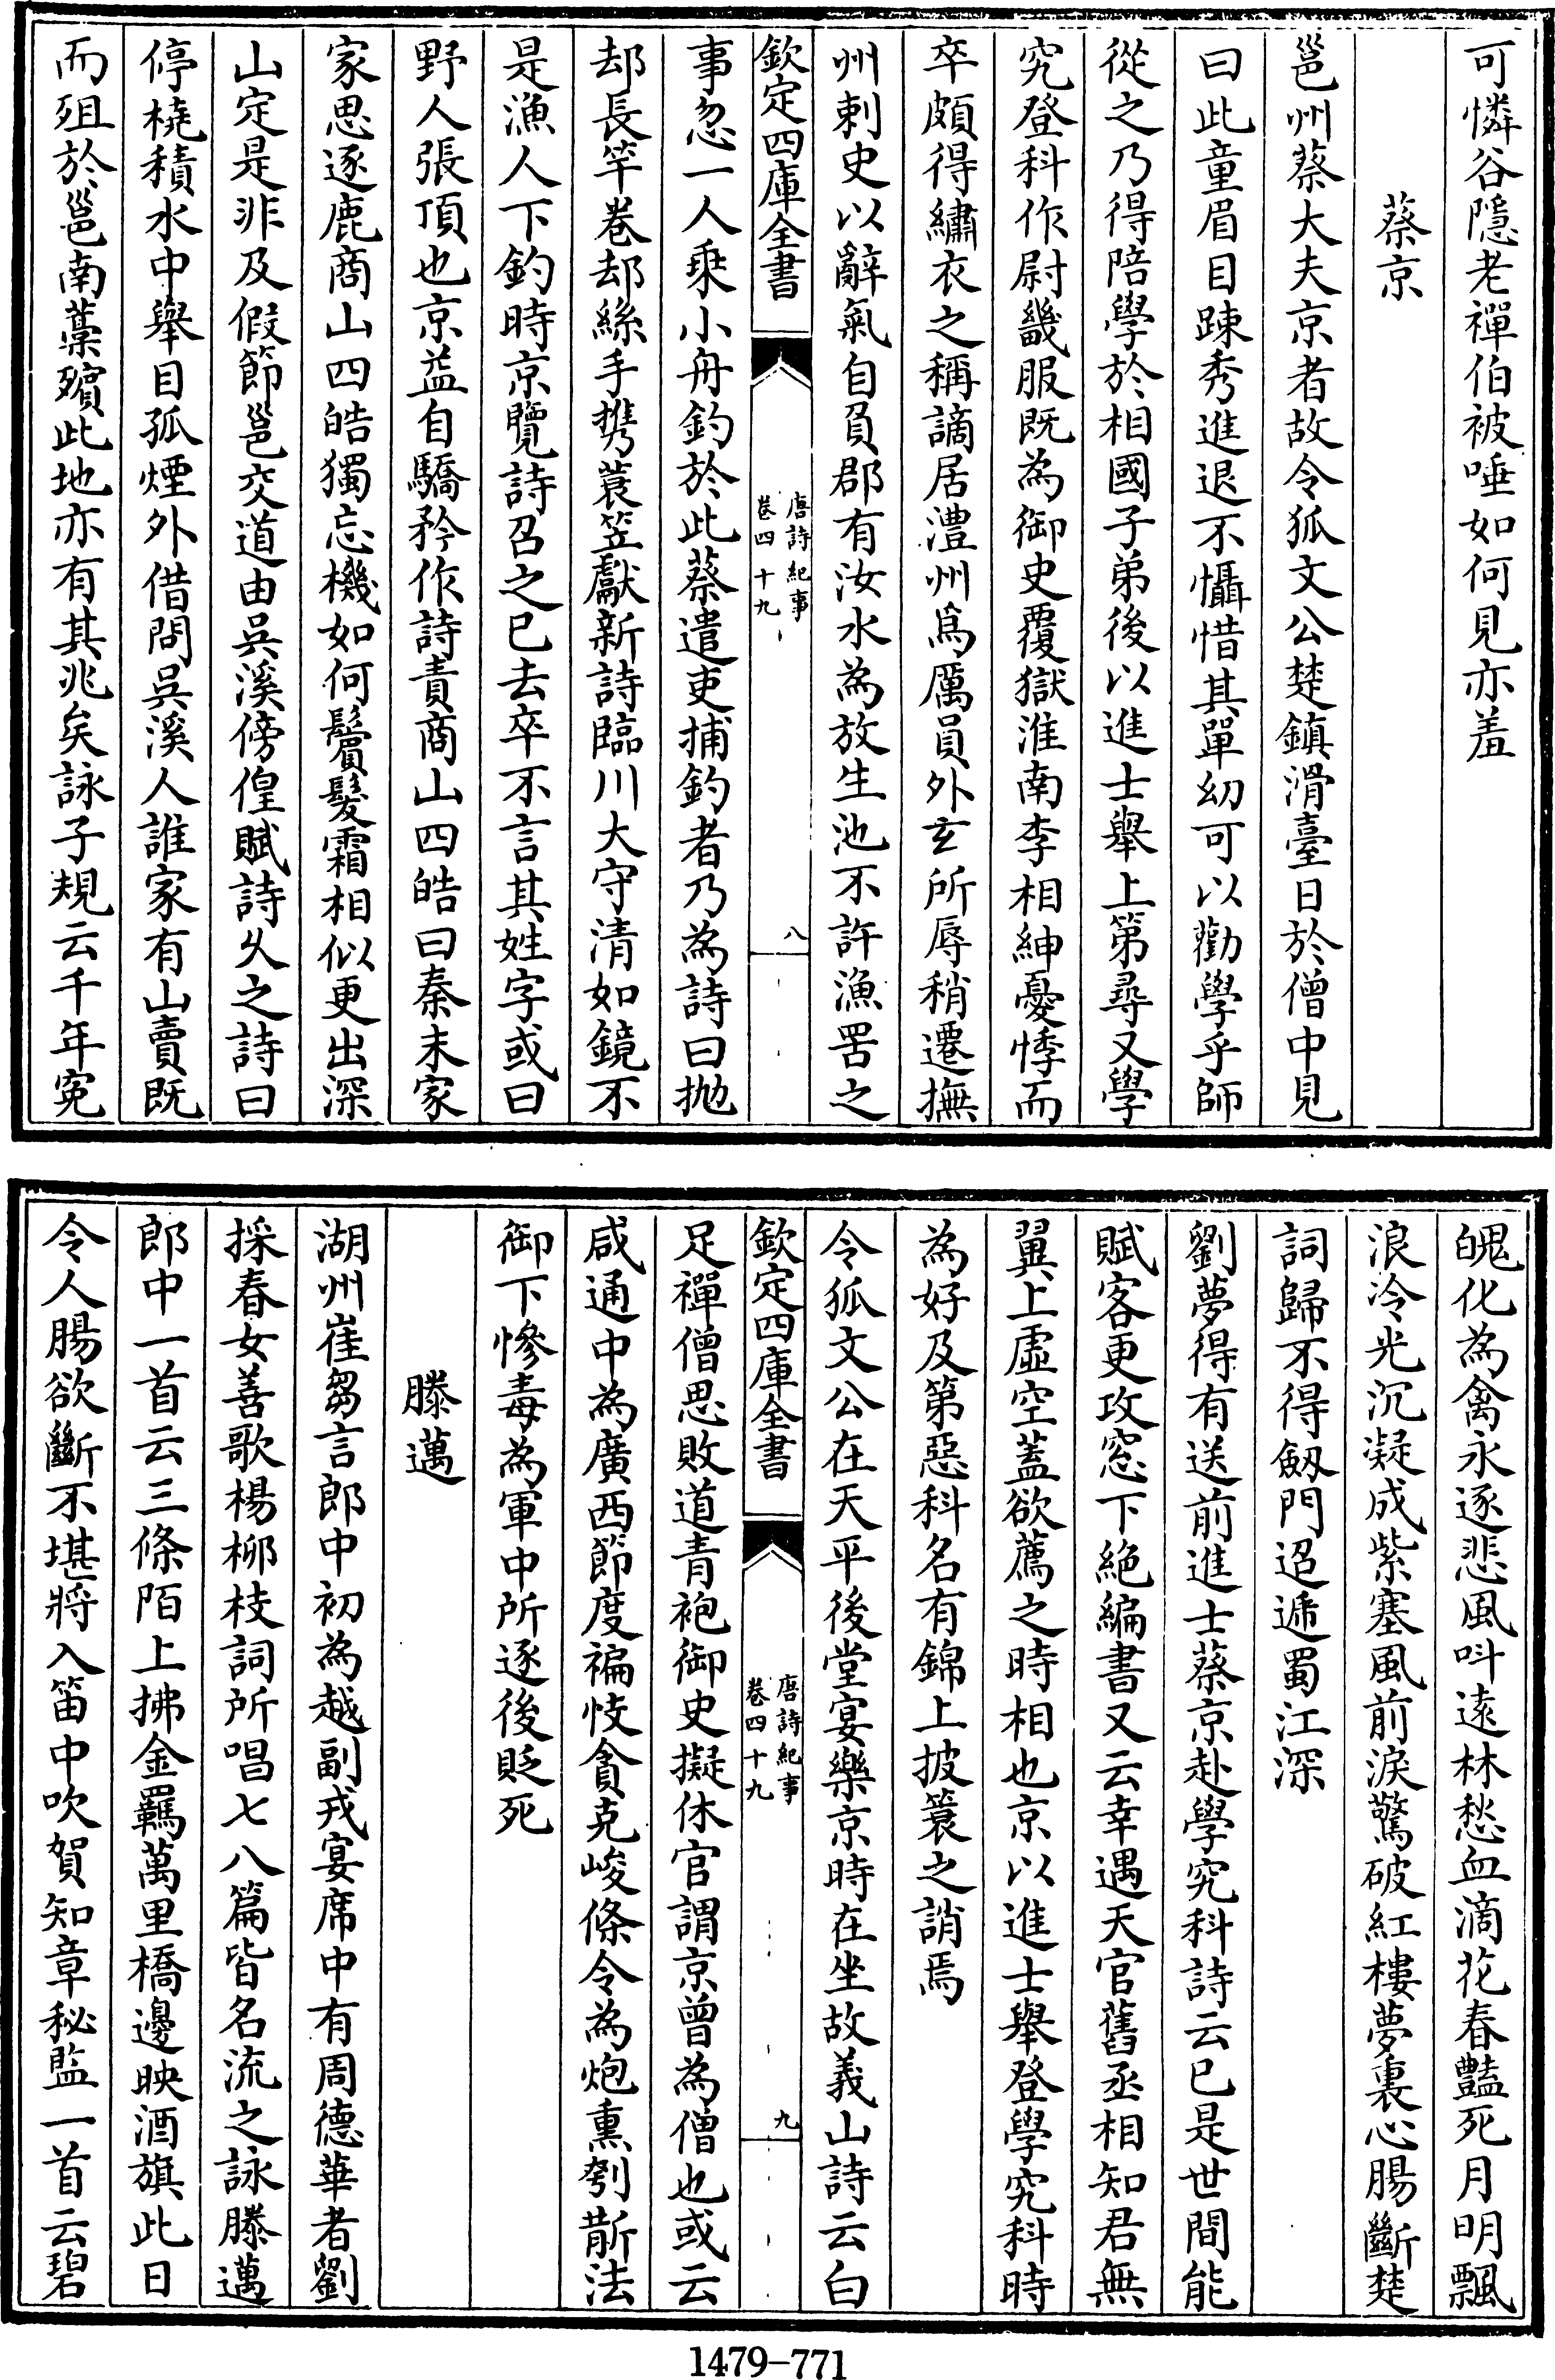 可憐谷隠老禪伯被唾如何見亦羞
蔡京
邕州蔡大夫京者故令狐文公楚鎮滑臺日於僧中見
曰此童眉目踈秀進退不懾惜其單幼可以勸學乎師
從之乃得陪學於相國子弟後以進士舉上第尋又學
究登科作尉畿服既為御史覆獄淮南李相紳憂悸而
卒頗得繡衣之稱謫居澧州爲厲員外玄所辱稍遷撫
州刺史以辭氣自負郡有汝水為放生池不許漁罟之
欽定四庫全書
唐詩紀事
卷四十九
八
事忽一人乗小舟釣於此蔡遣吏捕釣者乃為詩曰抛
却長竿卷却絲手携蓑笠獻新詩臨川大守清如鏡不
是漁人下釣時京覽詩召之已去卒不言其姓字或曰
野人張頂也京益自驕矜作詩責商山四皓曰秦末家
家思逐鹿商山四皓獨忘機如何鬢髮霜相似更出深
山定是非及假節邕交道由吳溪傍偟賦詩乆之詩曰
停橈積水中舉目孤煙外借問吳溪人誰家有山賣既
而殂於邕南藁殯此地亦有其兆矣詠子規云千年寃
魄化為禽永逐悲風呌遠林愁血滴花春豔死月明飄
浪冷光沉凝成紫塞風前淚驚破紅樓夢裏心腸斷楚
詞歸不得劒門迢遞蜀江深
劉夢得有送前進士蔡京赴學究科詩云已是世間能
賦客更攻窓下絶編書又云幸遇天官舊丞相知君無
翼上虛空蓋欲薦之時相也京以進士舉登學究科時
為好及第惡科名有錦上披簑之誚焉
令狐文公在天平後堂宴樂京時在坐故義山詩云白
欽定四庫全書
唐詩紀事
卷四十九
九
足禪僧思敗道青袍御史擬休官謂京曾為僧也或云
咸通中為廣西節度褊忮貪克峻條令為炮熏刳斮法
御下慘毒為軍中所逐後貶死
滕邁
湖州崔芻言郎中初為越副戎宴席中有周德華者劉
採春女善歌楊柳枝詞所唱七八篇皆名流之詠滕邁
郎中一首云三條陌上拂金羈萬里橋邊映酒旗此日
令人腸欲斷不堪將入笛中吹賀知章秘監一首云碧
1479-771